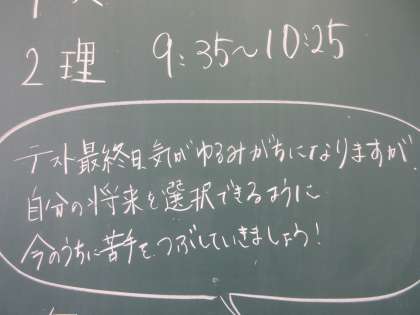 2 理 9:35~10:25
テスト最終日、気がゆるみがちになりますが
自分の将来を選択できるように
今のうちに苦手をつぶしていきましょう!